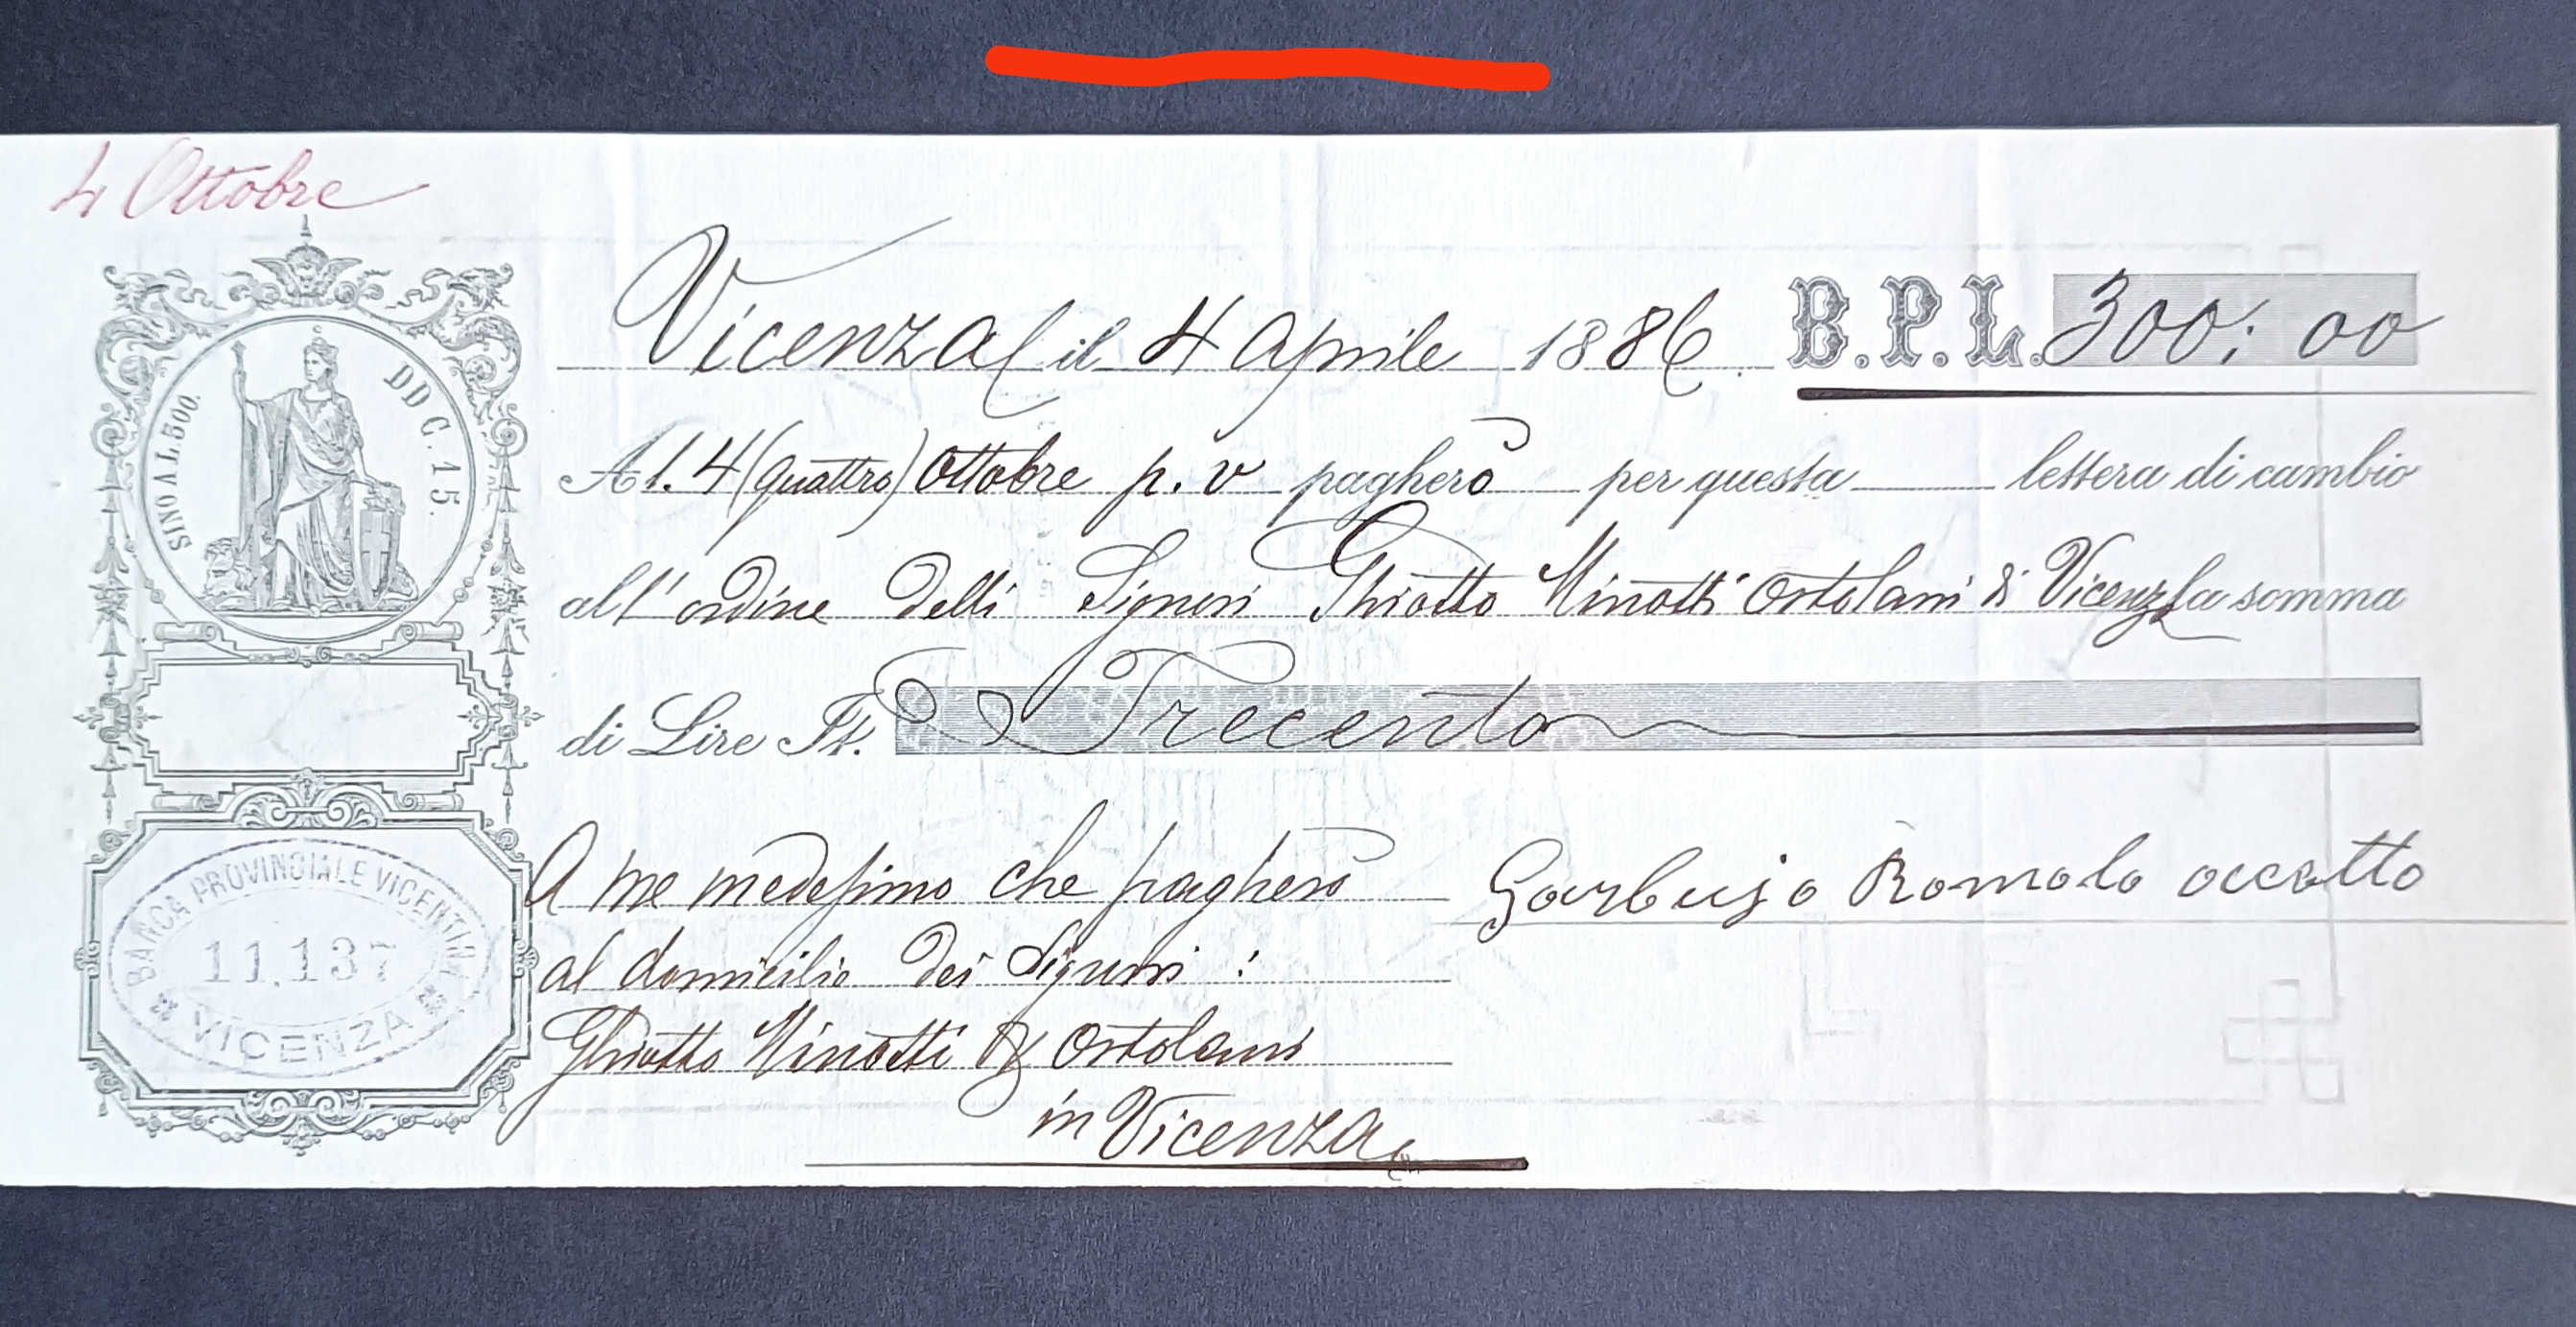 4 Ottobre
SINO A L.500.
DD C. 15.
Vicenza il 4 Aprile 1886. B.P.L. 300: 00
A l. 4 (quattro) Ottobre p. v pagherò per questa lettera di cambio
all'ordine delli Signori Ghiotto Minotti Ortolani di Vicenza la somma
di Lire It. Trecento
A me medesimo che pagherò
Garbujo Romolo accetto
al domicilio dei Signori :
Ghiotto Minotti & Ortolani
in Vicenza
BANCA PROVINCIALE VICENTINA
11.137
VICENZA